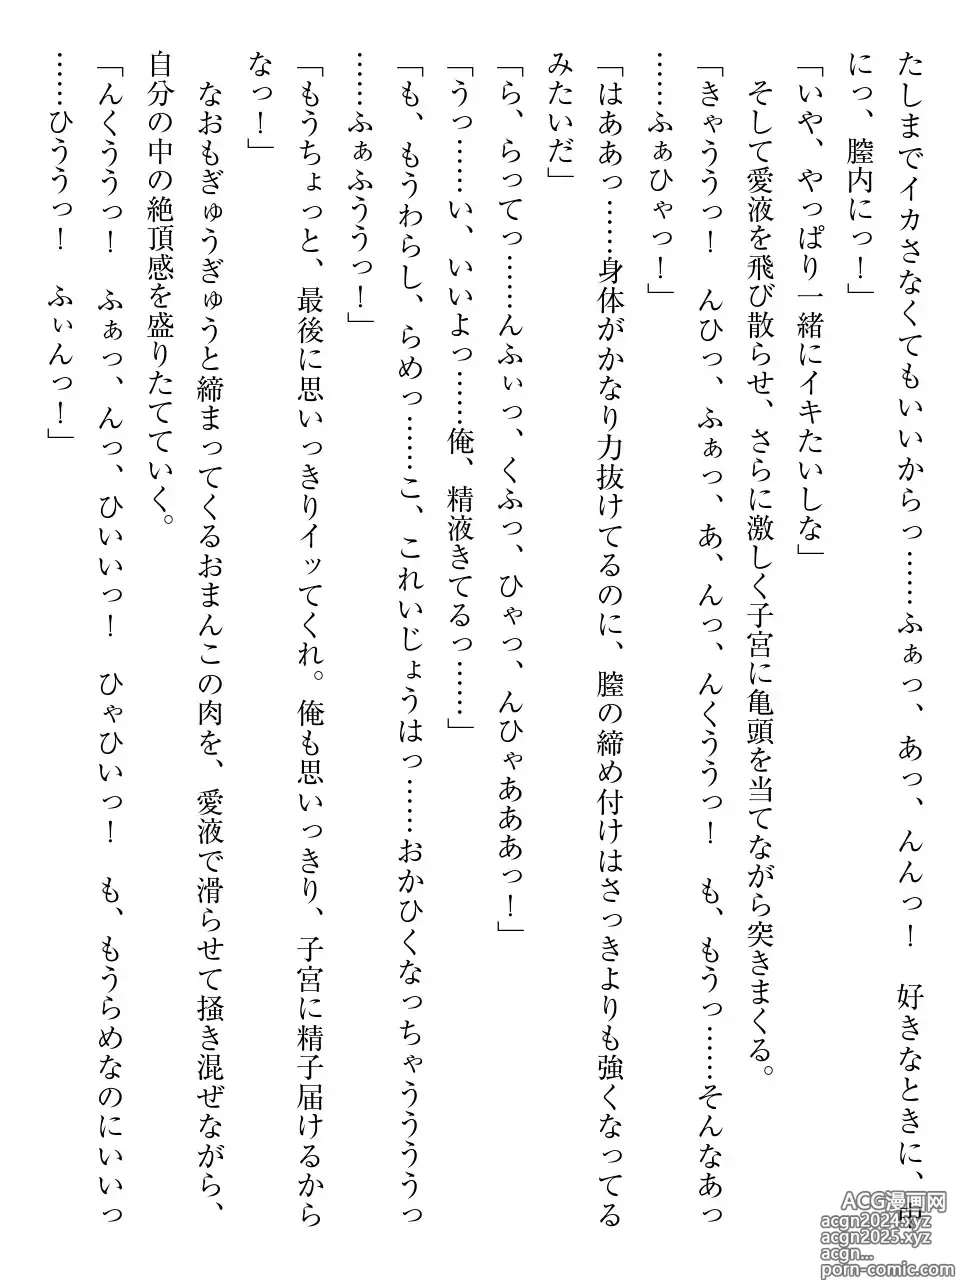 たしまでイカさなくてもいいからっ……ふぁっ、あっ、んんっ！　好きなときに、中
にっ、膣内にっ！」
「いや、やっぱり一緒にイキたいしな」
　そして愛液を飛び散らせ、さらに激しく子宮に亀頭を当てながら突きまくる。
「きゃううっ！　んひっ、ふぁっ、あ、んっ、んくううっ！　も、もうっ……そんなあっ
……ふぁひゃっ！」
「はああっ……身体がかなり力抜けてるのに、膣の締め付けはさっきよりも強くなってる
みたいだ」
「ら、らってっ……んふぃっ、くふっ、ひゃっ、んひゃあああっ！」
「うっ……い、いいよっ……俺、精液きてるっ……」
「も、もうわらし、らめっ……こ、これいじょうはっ……おかひくなっちゃうううっ
……ふぁふううっ！」
「もうちょっと、最後に思いっきりイッてくれ。俺も思いっきり、子宮に精子届けるから
なっ！」
　なおもぎゅうぎゅうと締まってくるおまんこの肉を、愛液で滑らせて掻き混ぜながら、
自分の中の絶頂感を盛りたてていく。
「んくううっ！　ふぁっ、んっ、ひいいっ！　ひゃひいっ！　も、もうらめなのにいいっ
……ひううっ！　ふぃんっ！」
ACG漫画网
acgn2024.xyz
acgn2025.xyz
acgn...
porn-comic.com